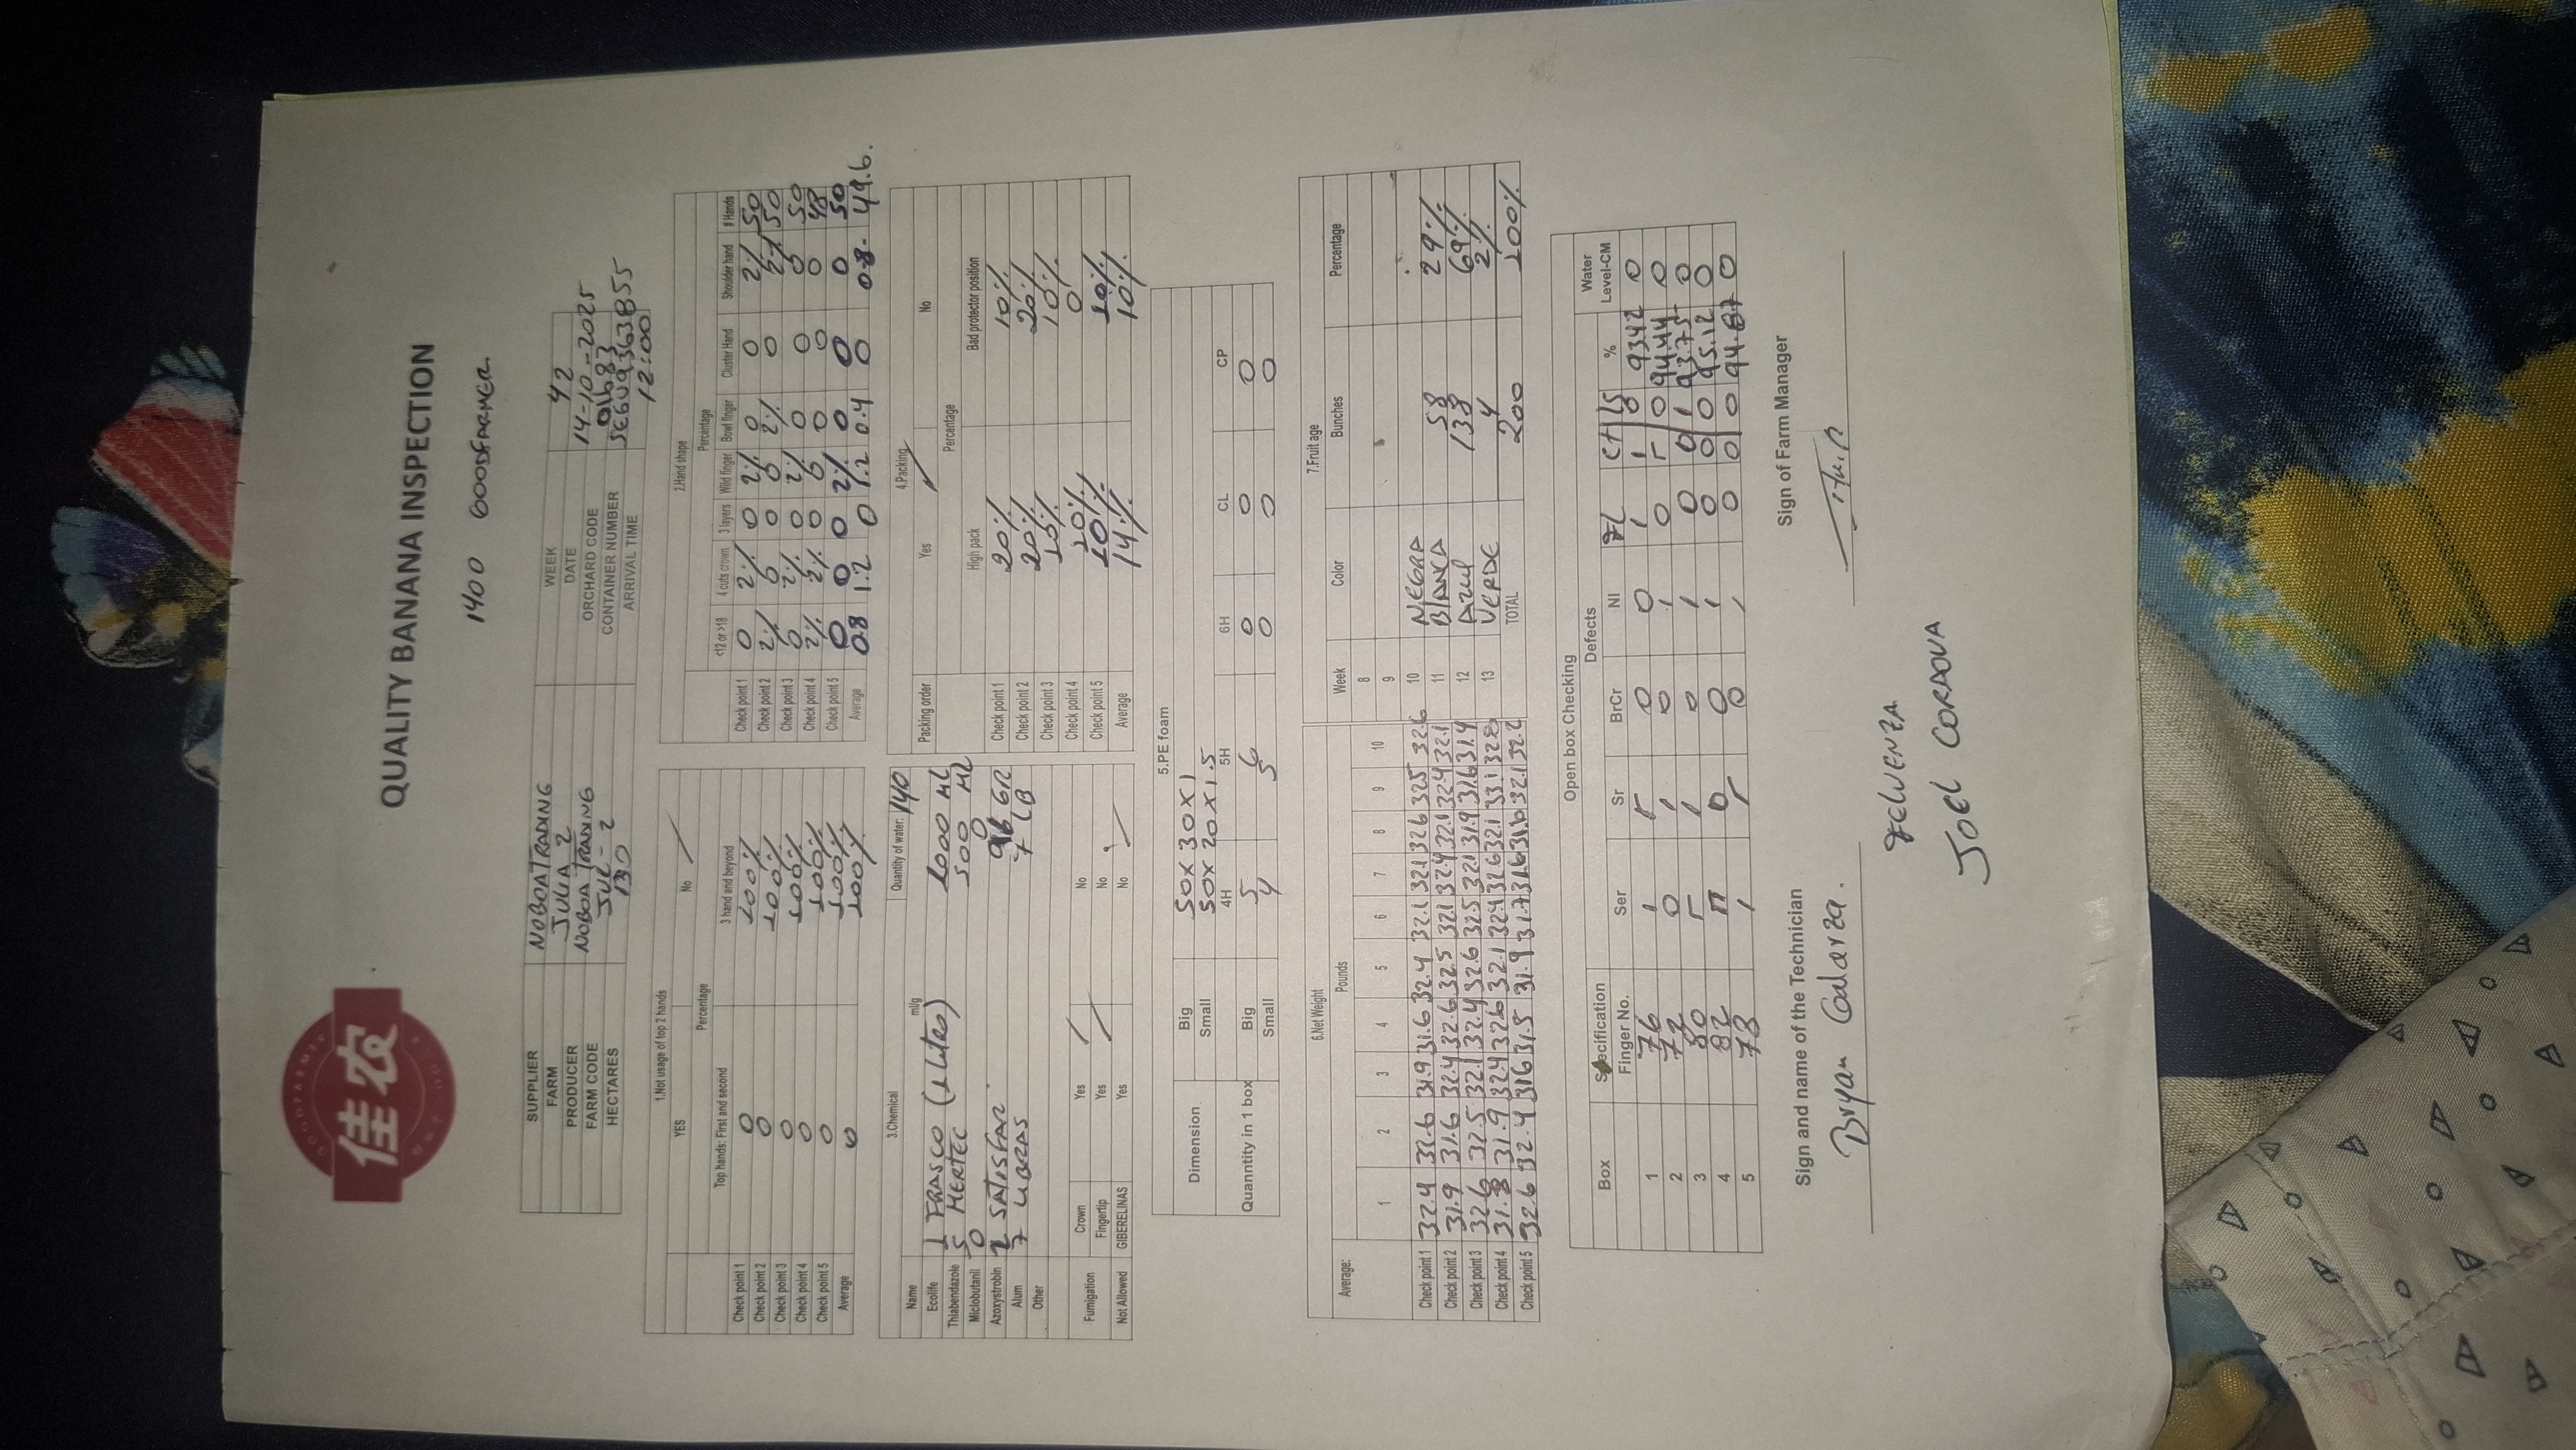 GOODFARMER
佳农
QUALITY BANANA INSPECTION
1400 GOODFARMER
SUPPLIER NOBOA TRADING WEEK 42
FARM JULIA 2 DATE 14-10-2025
PRODUCER NOBOA TRADING ORCHARD CODE 01683
FARM CODE JUL-2 CONTAINER NUMBER
HECTARES 130 ARRIVAL TIME 12:00
1.Not usage of top 2 hands
YES No
Percentage
Top hands: First and second 3 hand and beyond
Check point 1 0 100%
Check point 2 0 100%
Check point 3 0 100%
Check point 4 0 100%
Check point 5 0 100%
Average 0 100%
2.Hand shape
Percentage
<12 or >18 4 cuts crown 3 layers Wild finger Bowl finger Cluster Hand Shoulder hand # Hands
Check point 1 0 2% 0 2% 0 0 2% 50
Check point 2 2% 0 0 0 2% 0 2% 50
Check point 3 0 2% 0 2% 0 0 0 50
Check point 4 2% 2% 0 0 0 0 0 48
Check point 5 0 0 0 2% 0 0 0 50
Average 0.8 1.2 0 1.2 0.4 0 0.8 49.6.
3.Chemical Quantity of water: 140
Name ml/g
Ecolife 1 FRASCO (1 litro) 1000 ML
Thiabendazole 5 MERTEC 500 ML
Miclobutanil 0 0
Azoxystrobin SATISFAR 96 GR
Alum 7 LIBRAS 7 LB
Other
Fumigation Crown Yes No
Fingertip Yes No
Not Allowed GIBERELINAS Yes No
4.Packing
Packing order Yes No
Percentage
High pack Bad protector position
Check point 1 20% 10%
Check point 2 20% 20%
Check point 3 10% 10%
Check point 4 10% 0
Check point 5 10% 10%
Average 14% 10%
5.PE foam
Dimension Big 50X30X1
Small 50X20X1.5
4H 5H 6H CL CP
Quanntity in 1 box Big 5 6 0 0 0
Small 4 5 0 0 0
6.Net Weight
Average: Pounds
1 2 3 4 5 6 7 8 9 10
Check point 1 32.4 32.6 31.9 31.6 32.4 32.1 32.1 32.6 32.5 32.6
Check point 2 31.9 31.6 32.4 32.6 32.5 32.1 32.4 32.1 32.4 32.1
Check point 3 32.6 32.5 32.1 32.4 32.6 32.5 32.1 31.9 31.6 31.4
Check point 4 31.8 31.9 32.4 32.6 32.1 32.4 32.6 32.1 33.1 32.8
Check point 5 32.6 32.4 31.6 31.5 31.9 31.7 31.6 31.6 32.1 32.2
7.Fruit age
Week Color Bunches Percentage
8
9
10 NEGRA
11 BLANCA 58 29%
12 AZUL 138 69%
13 VERDE 4 2%
TOTAL 200 100%
Open box Checking
Box Specification Defects Water
Finger No. Ser Sr BrCr NI FL CH LS % Level-CM
1 76 0 0 0 93.42 0
2 72 0 0 0 0 94.44 0
3 80 0 0 0 93.75 0
4 82 0 0 0 0 0 95.12 0
5 78 0 0 0 0 94.87 0
Sign and name of the Technician Sign of Farm Manager
Bryan Galarza.
JOEL CORDOVA